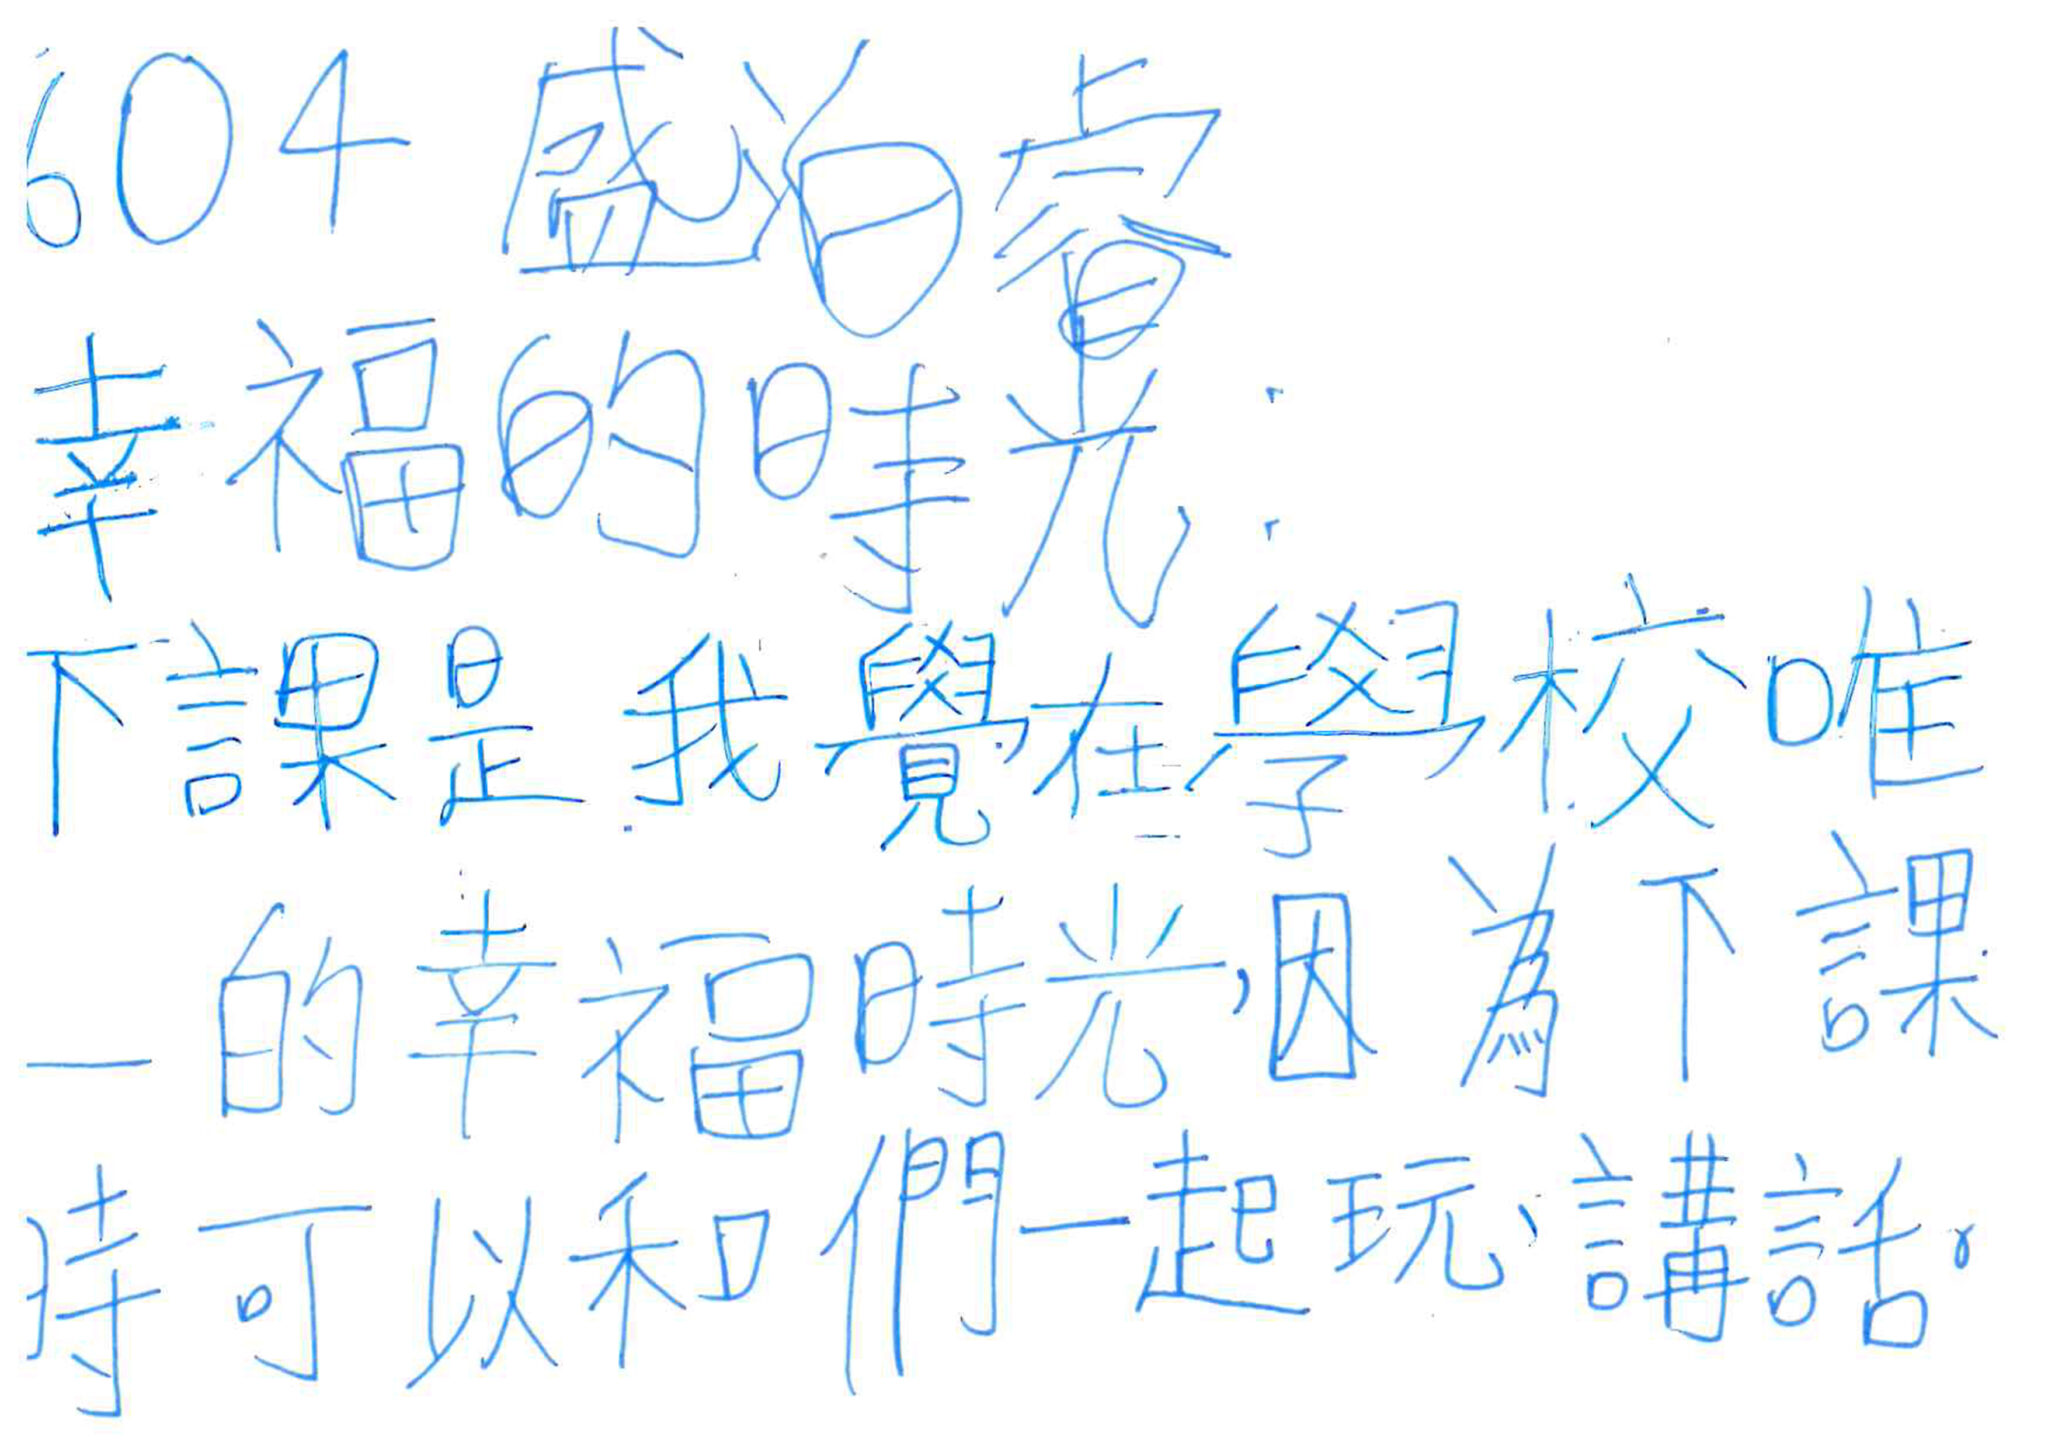 604 盛治睿
幸福的時光:
下課是我覺在學校唯
一的幸福時光,因為下課
時可以和們一起玩、講話。